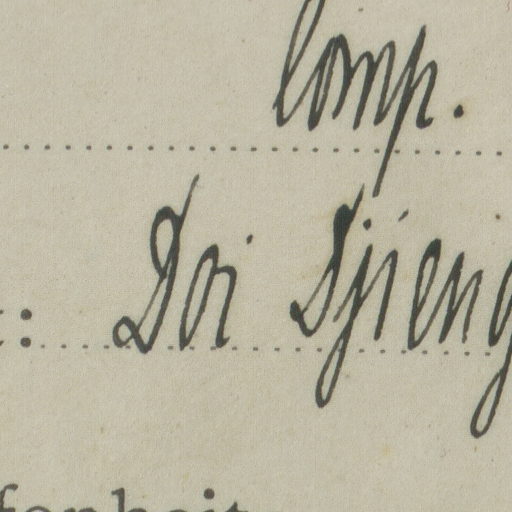 comp.
: Doi Djieng
fenheit